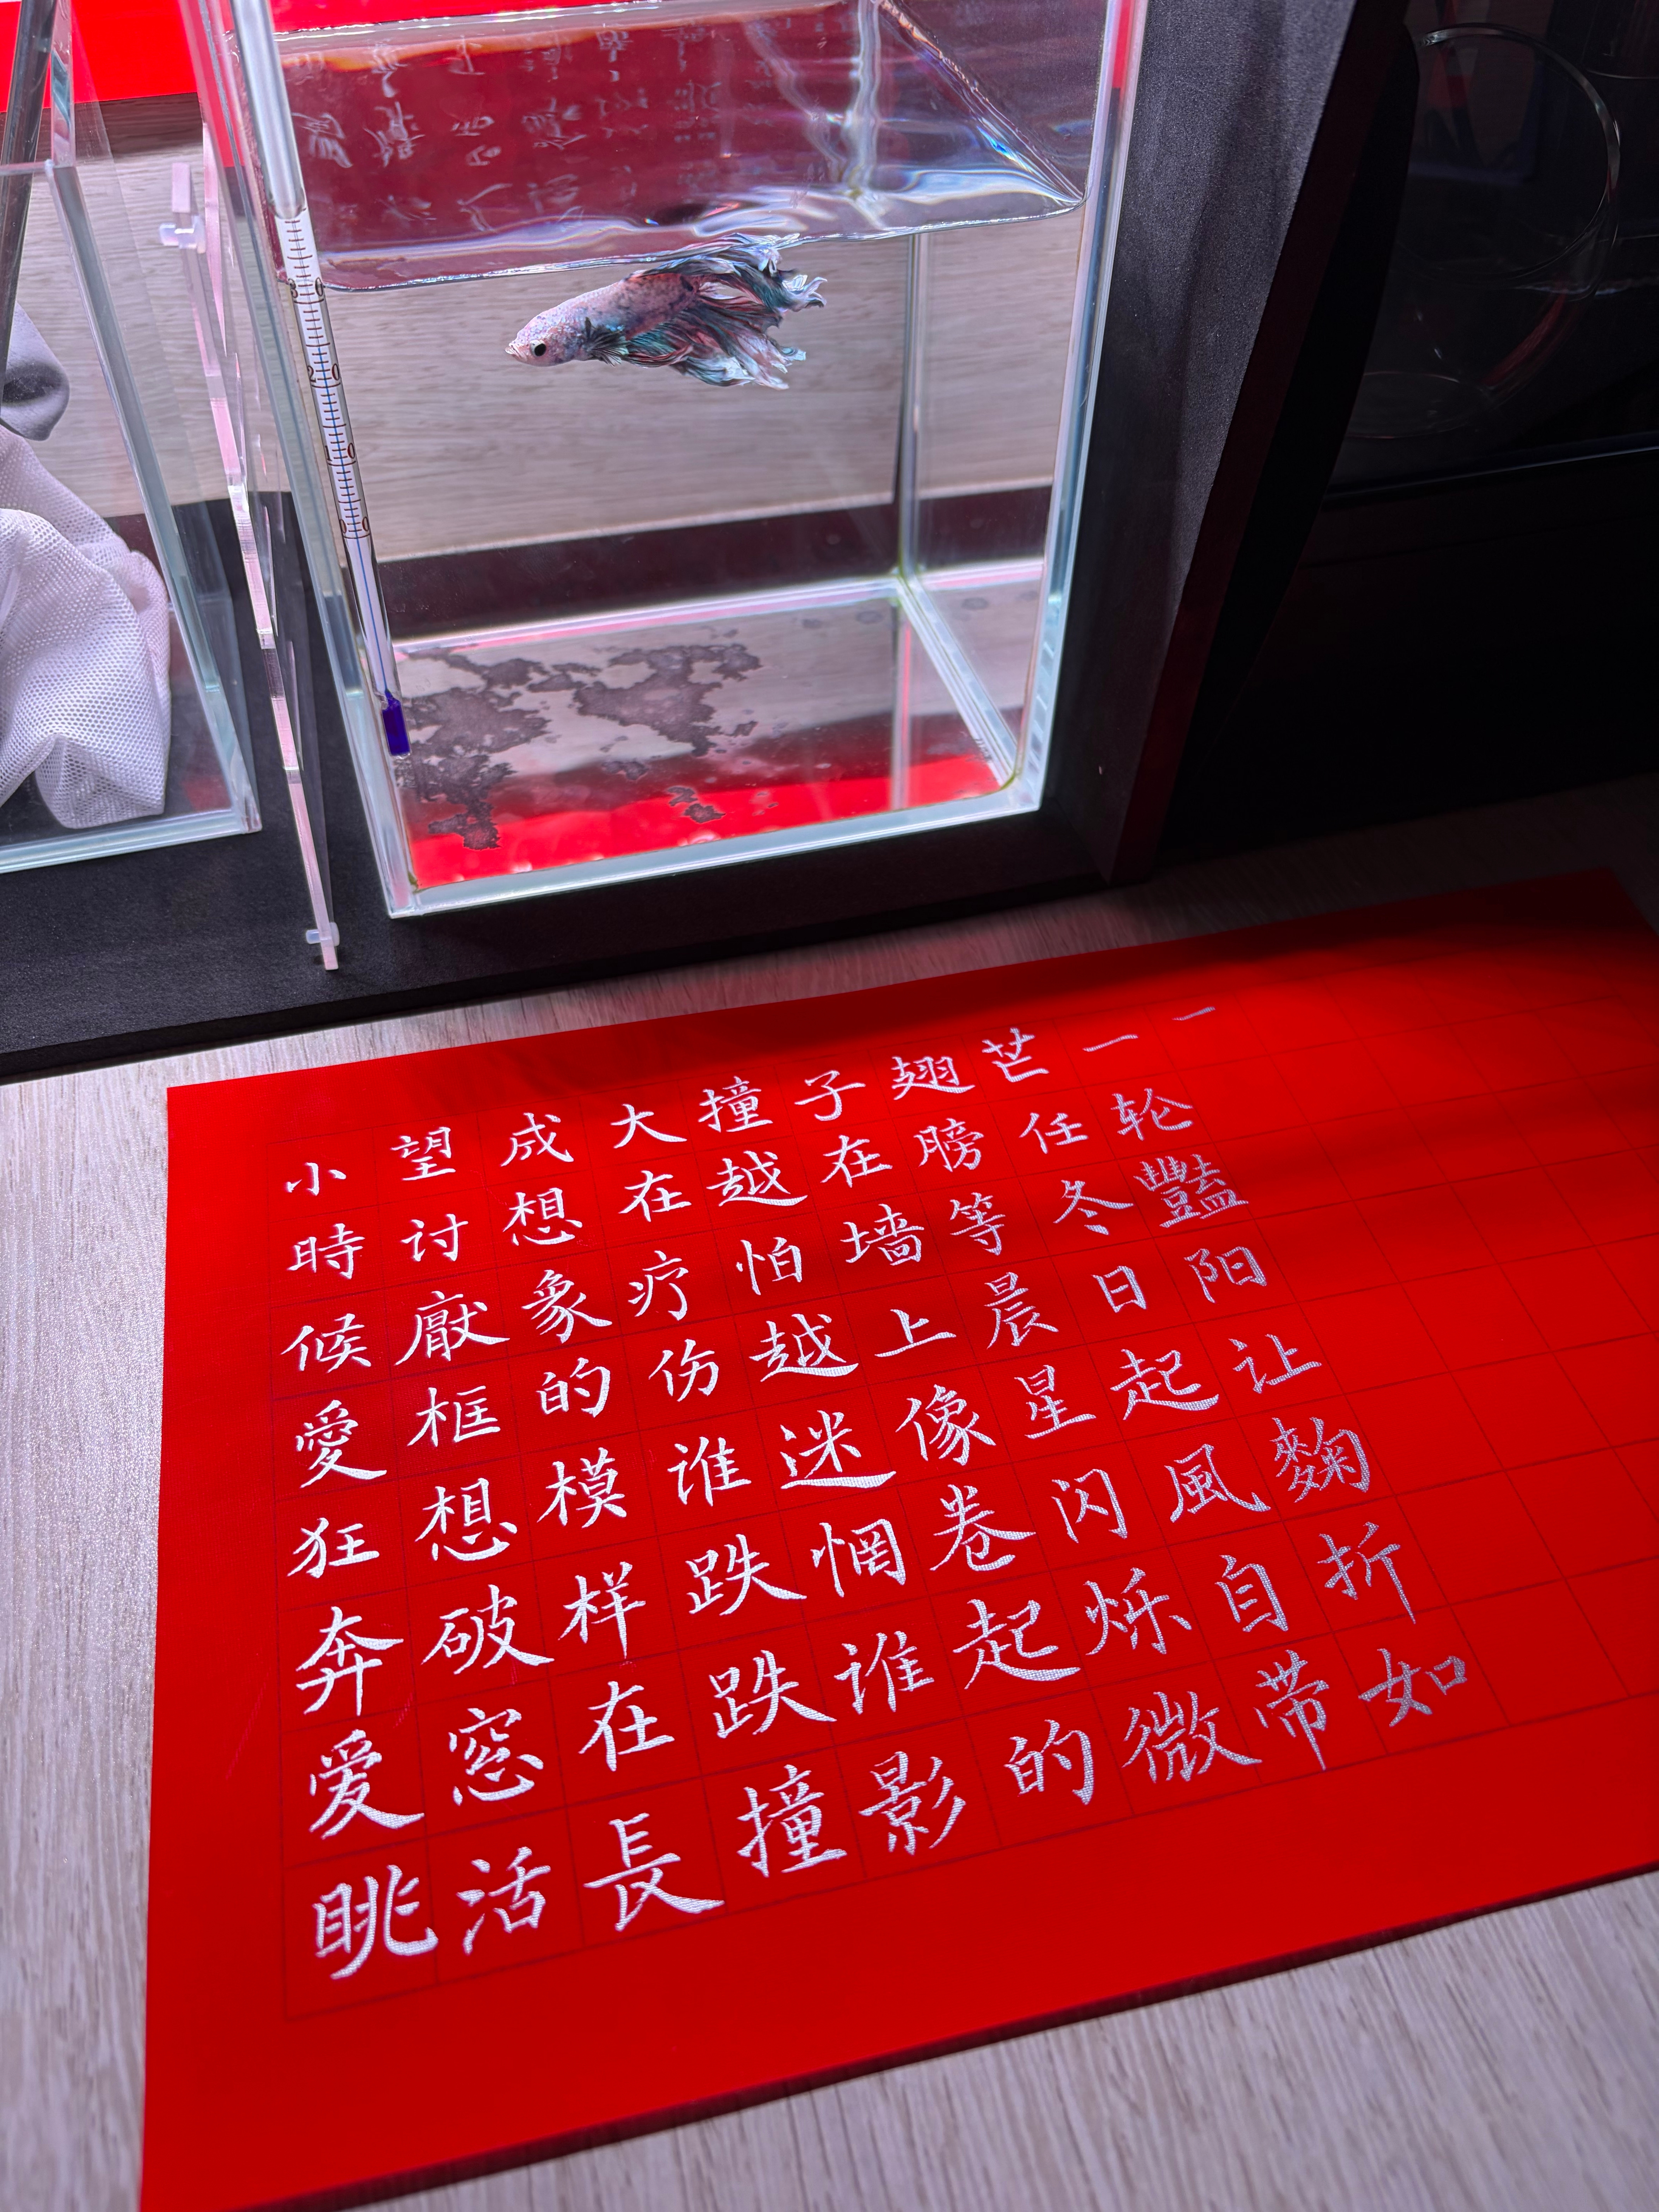 小時候愛狂奔爱眺
望讨厭框想破窓活
成想象的模样在長
大在疗伤谁跌跌撞
撞越怕越迷惘谁影
子在墙上像卷起的
翅膀等晨星闪烁微
芒任冬日起風自带
一轮豔阳让麴折如
一
20
10